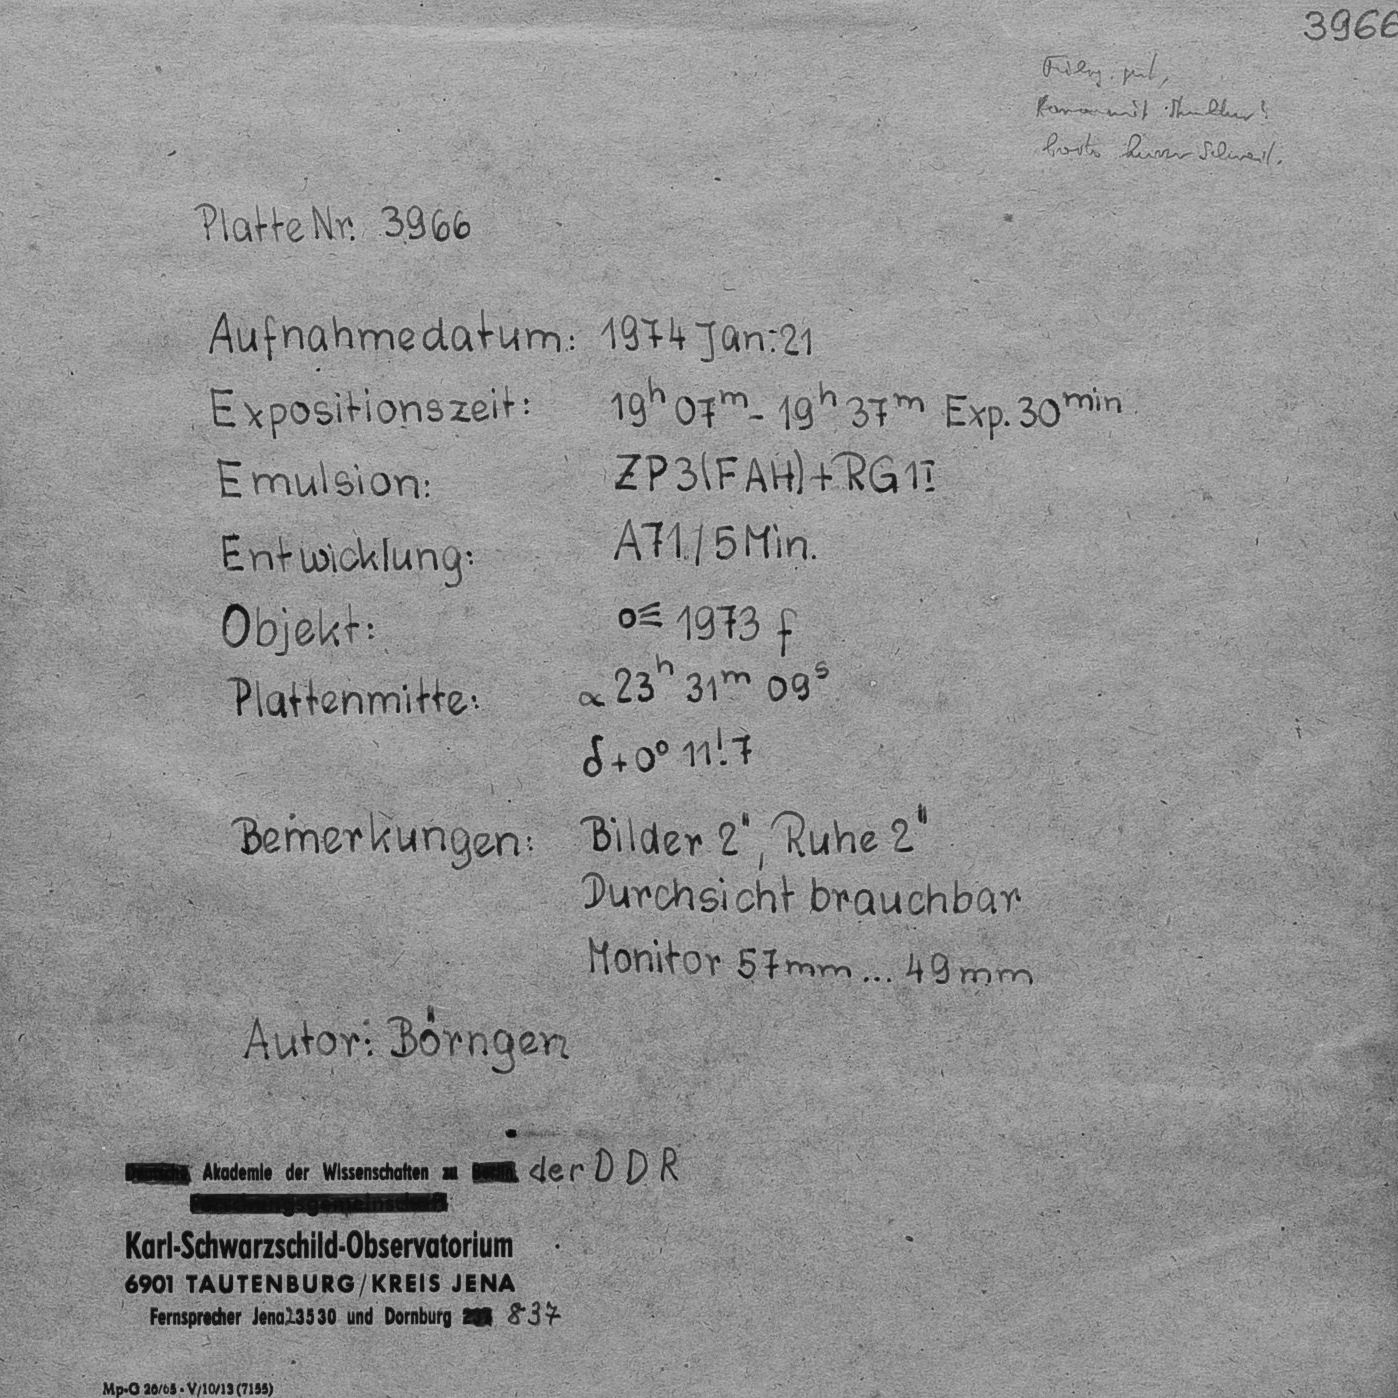 3966
gut,
Koma mit
kurzer Schweif.
Platte Nr. 3966
Aufnahmedatum: 1974 Jan. 21
Expositionszeit: 19h 07m - 19h 37m Exp. 30min
Emulsion: ZP3(FAH)+RG1I
Entwicklung: A71./5Min.
Objekt: ☄ 1973 f
Plattenmitte: α 23h 31m 09s
δ +0° 11!7
Bemerkungen: Bilder 2", Ruhe 2"
Durchsicht brauchbar
Monitor 57mm ... 49mm
Autor: Börngen
Akademie der Wissenschaften zu der DDR
Karl-Schwarzschild-Observatorium
6901 TAUTENBURG/KREIS JENA
Fernsprecher Jena 23530 und Dornburg 837
Mp-G 20/65 - V/10/13 (7155)